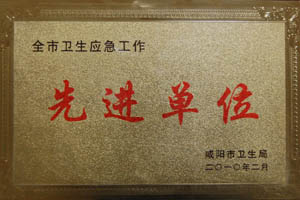 全市卫生应急工作
先进单位
咸阳市卫生局
二〇一〇年二月